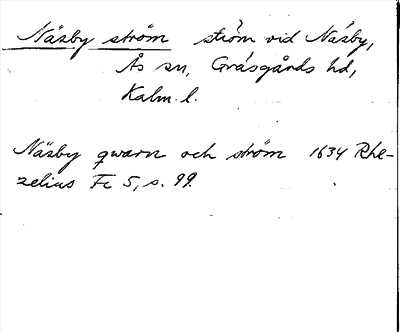 Näsby ström ström vid Näsby,
Ås sn, Gräsgårds hd,
Kalm. l.
Näsby qwarn och ström 1634 Rhe-
zelius Fc 5, s. 99.